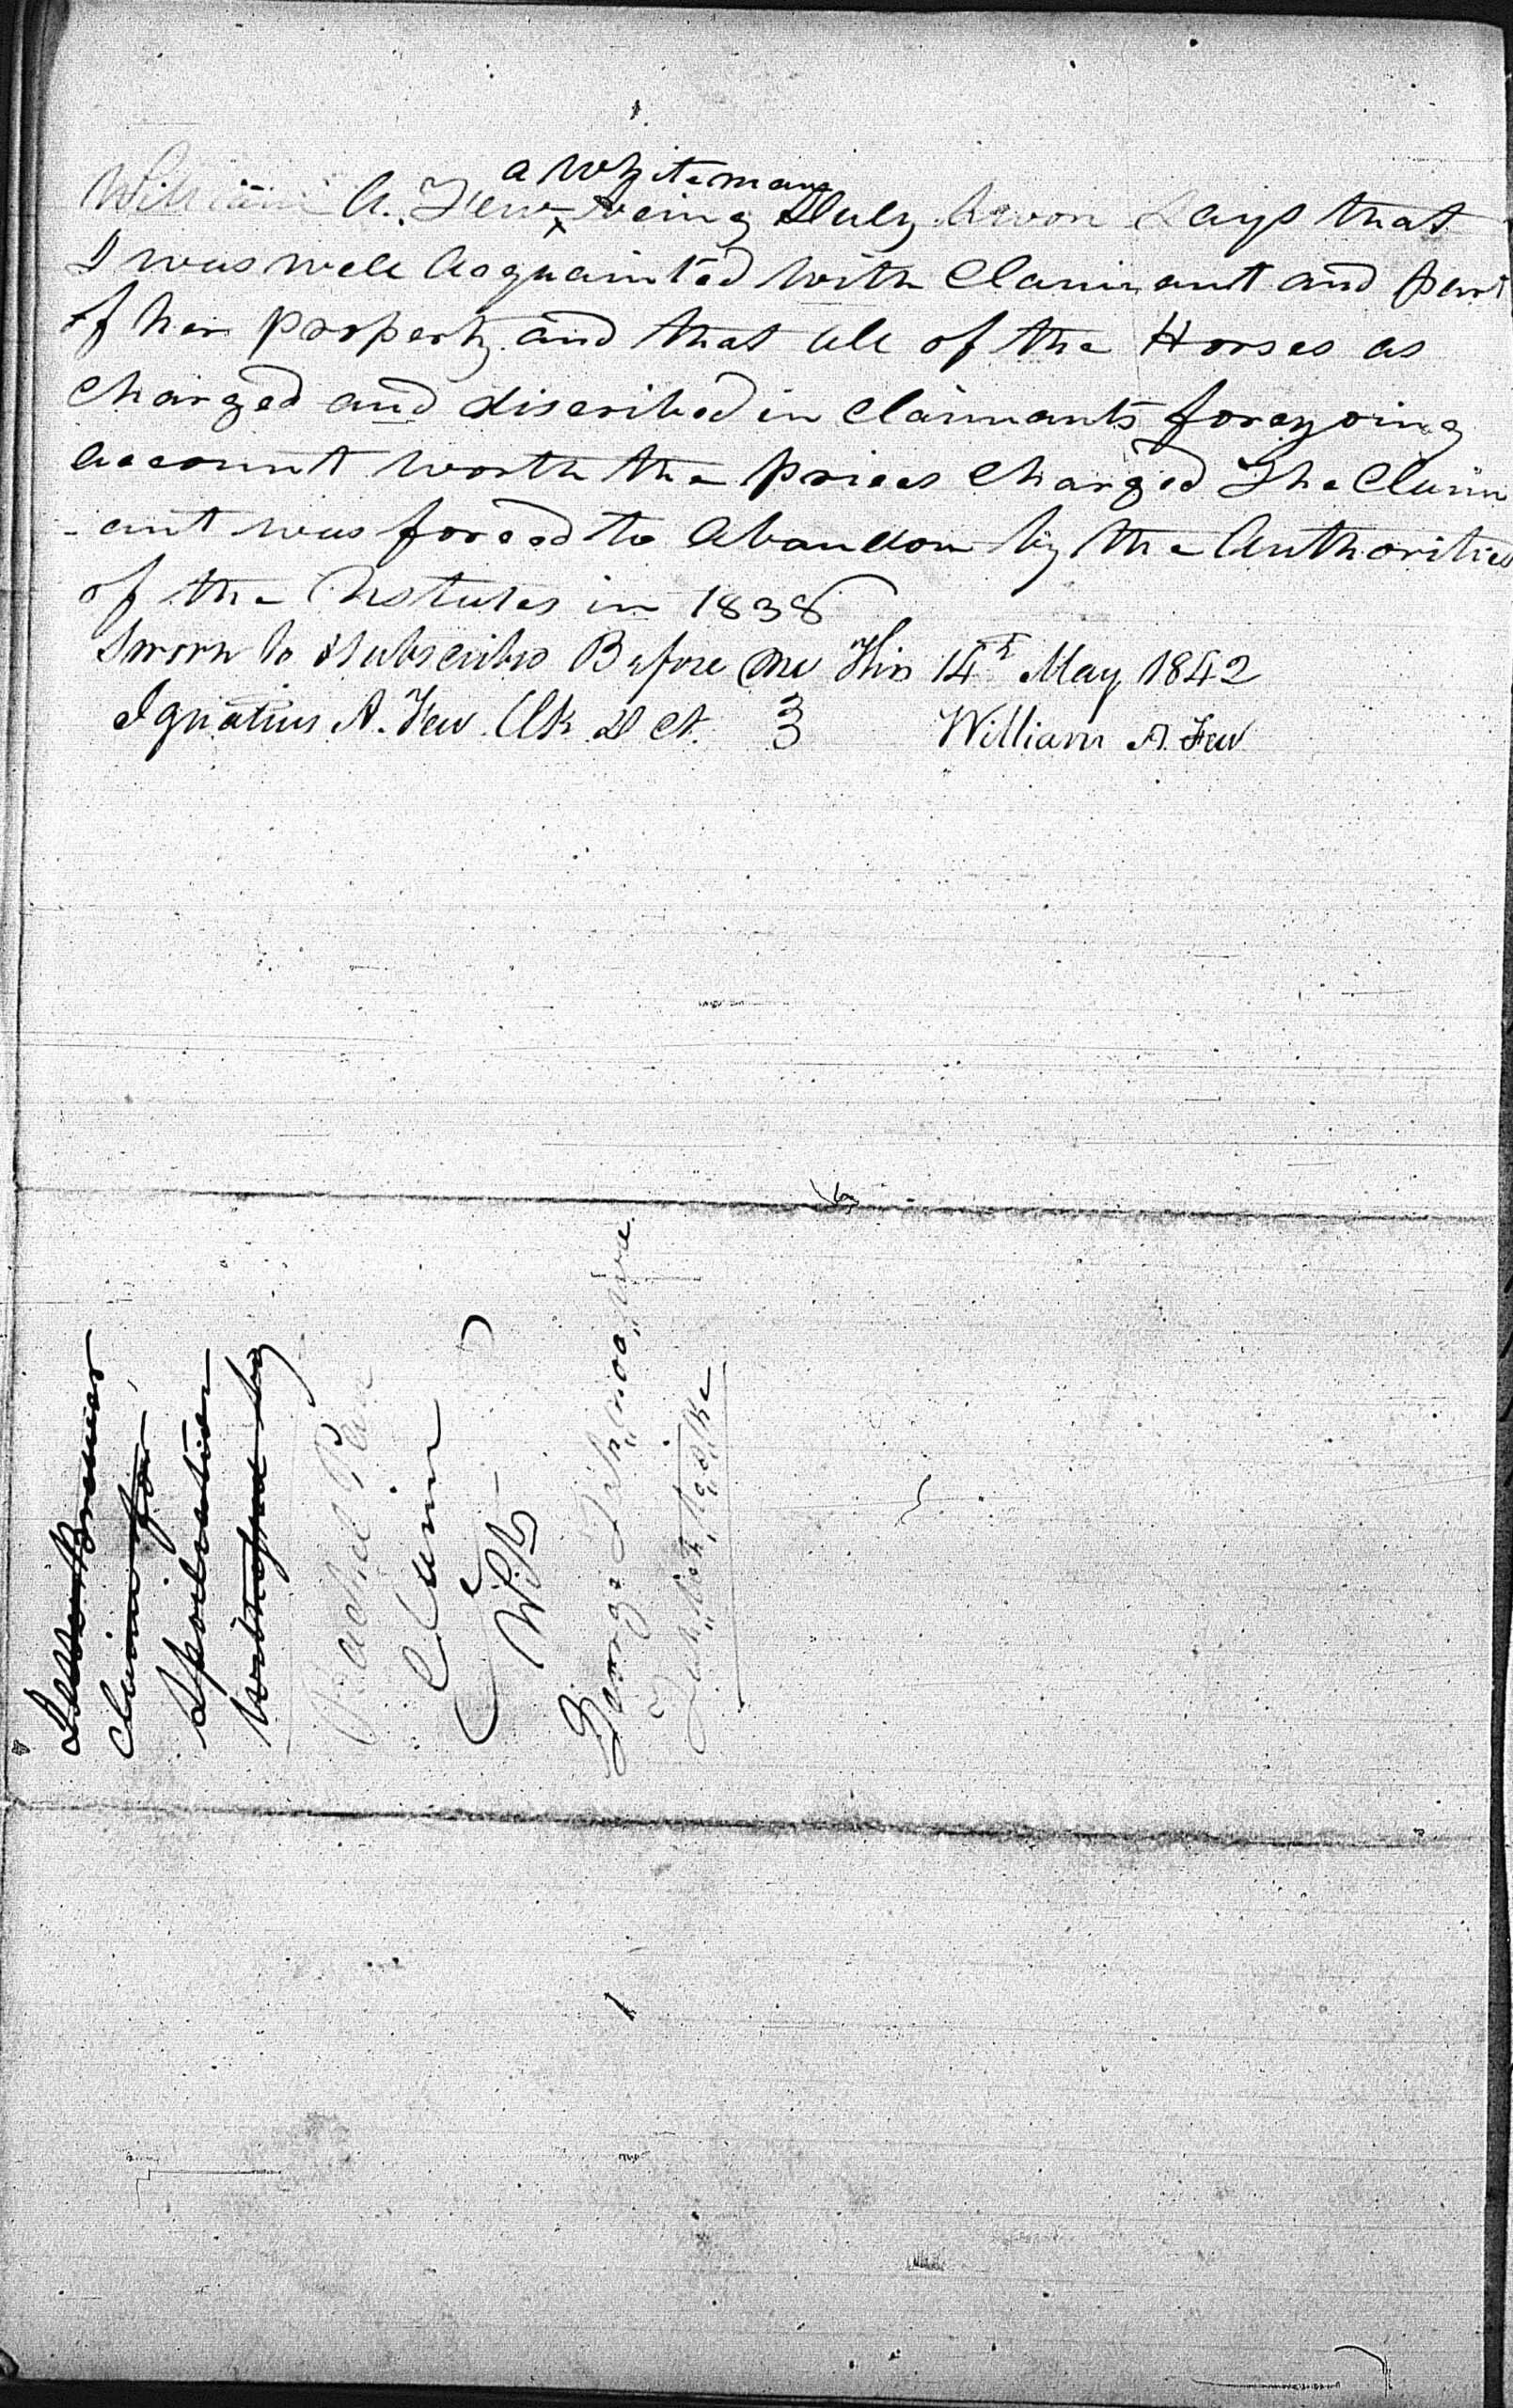 a white man
William A. Few being Duly Swon Says that
I was well Acquainted with Claimant and part
of her property and that all of the Horses as
Charged and discribed in Claimants foregoing
account worth the prices Charged The Claim
-ant was forced to Abandon by the Authorities
of the Ustates in 1838
Sworn to & subscribed Before me This 14th May 1842
Ignatius A. Few Clk D Ct. William A. Few
Claim for
Spoliation
by
Rachel
Claim
Wit
George